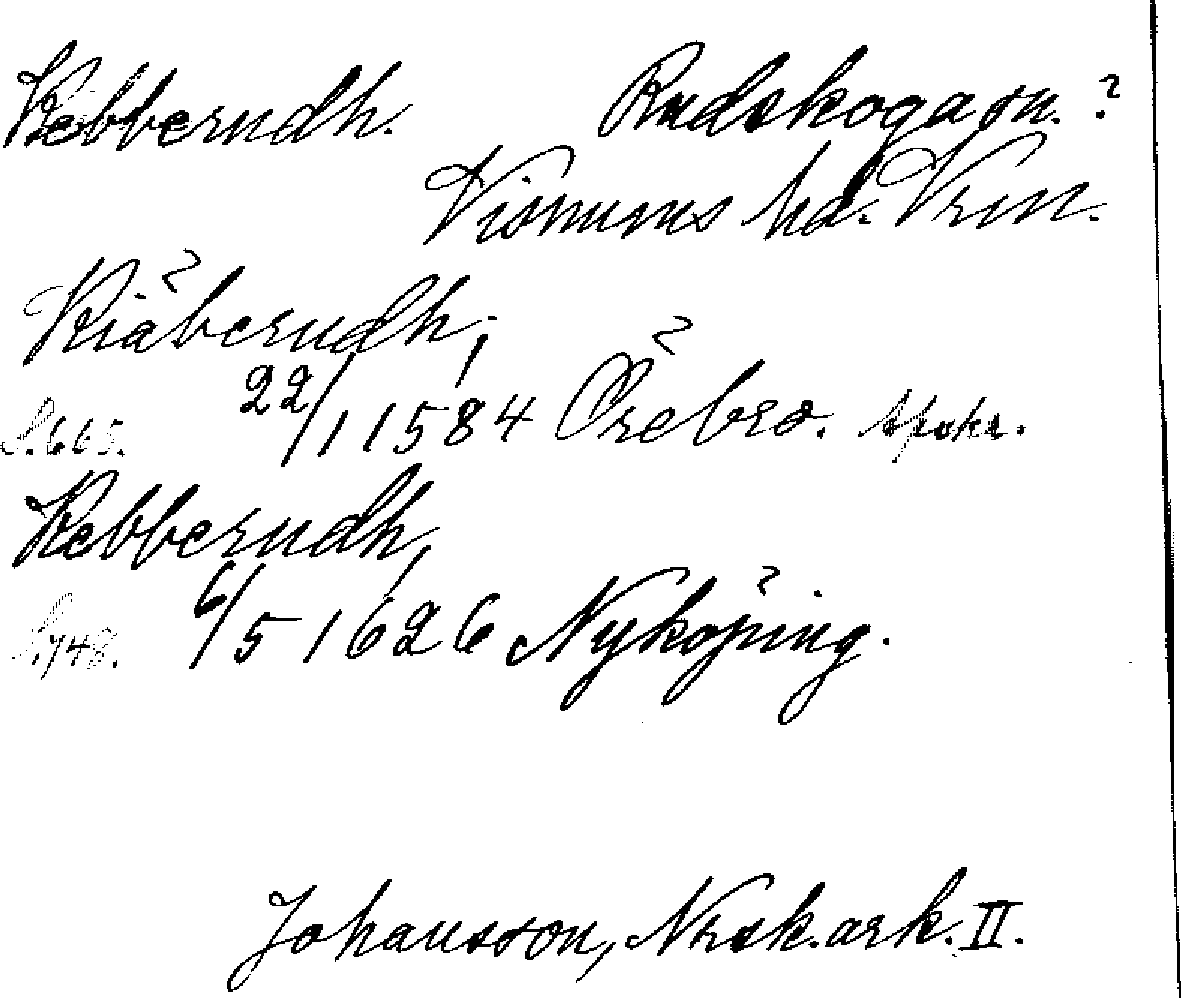 Kebberudh. Rudskoga sn.?
Visnums hd. Vrm.
Kiäberudh,
S. 665. 22/1 1584 Örebro.
Kebberudh,
S. 748. 6/5 1626 Nyköping.
Johansson, Norsk. ark. II.